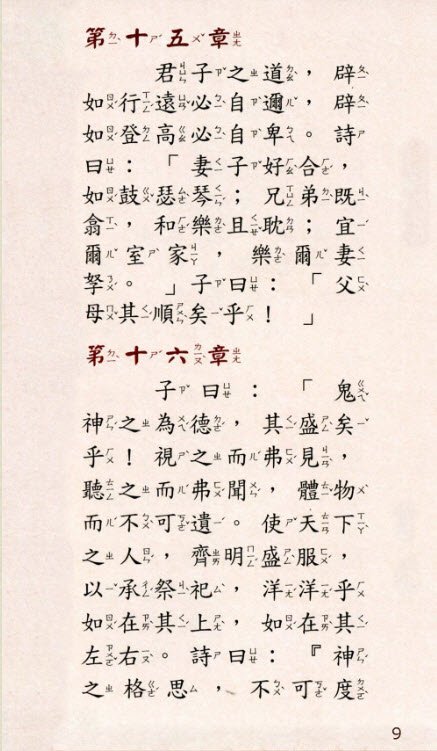 第十五章
君子之道，辟
如行遠必自邇，辟
如登高必自卑。詩
曰：「妻子好合，
如鼓瑟琴；兄弟既
翕，和樂且耽；宜
爾室家，樂爾妻
孥。」子曰：「父
母其順矣乎！」
第十六章
子曰：「鬼
神之為德，其盛矣
乎！視之而弗見，
聽之而弗聞，體物
而不可遺。使天下
之人，齊明盛服，
以承祭祀，洋洋乎
如在其上，如在其
左右。詩曰：『神
之格思，不可度
9